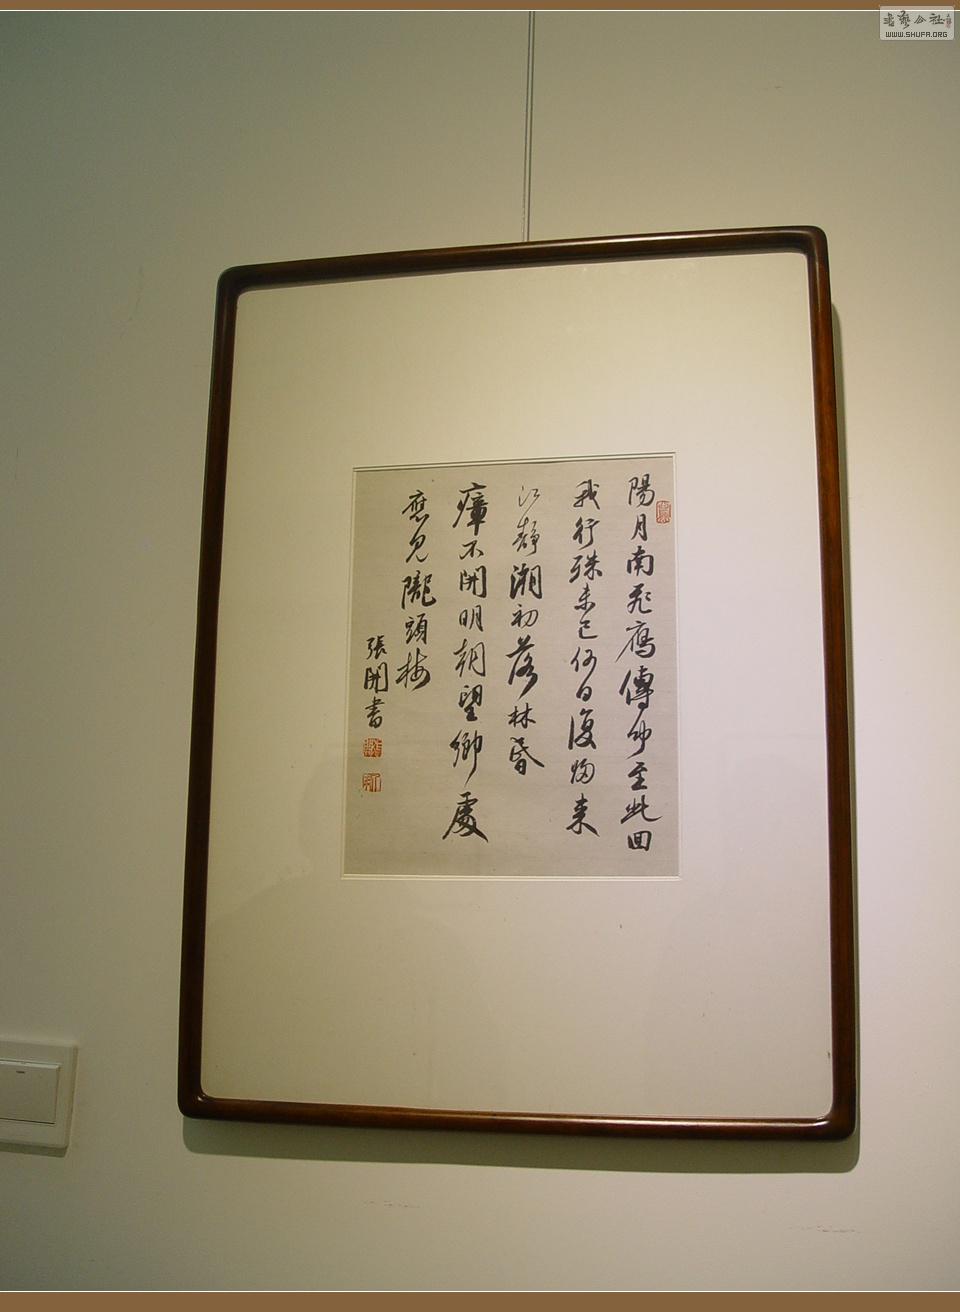 陽月南飛鴈傳聞至此回
我行殊未已何日復歸来
江靜潮初落林昏
瘴不開明朝望鄉處
應見隴頭梅
張開書
WWW.SHUFA.ORG